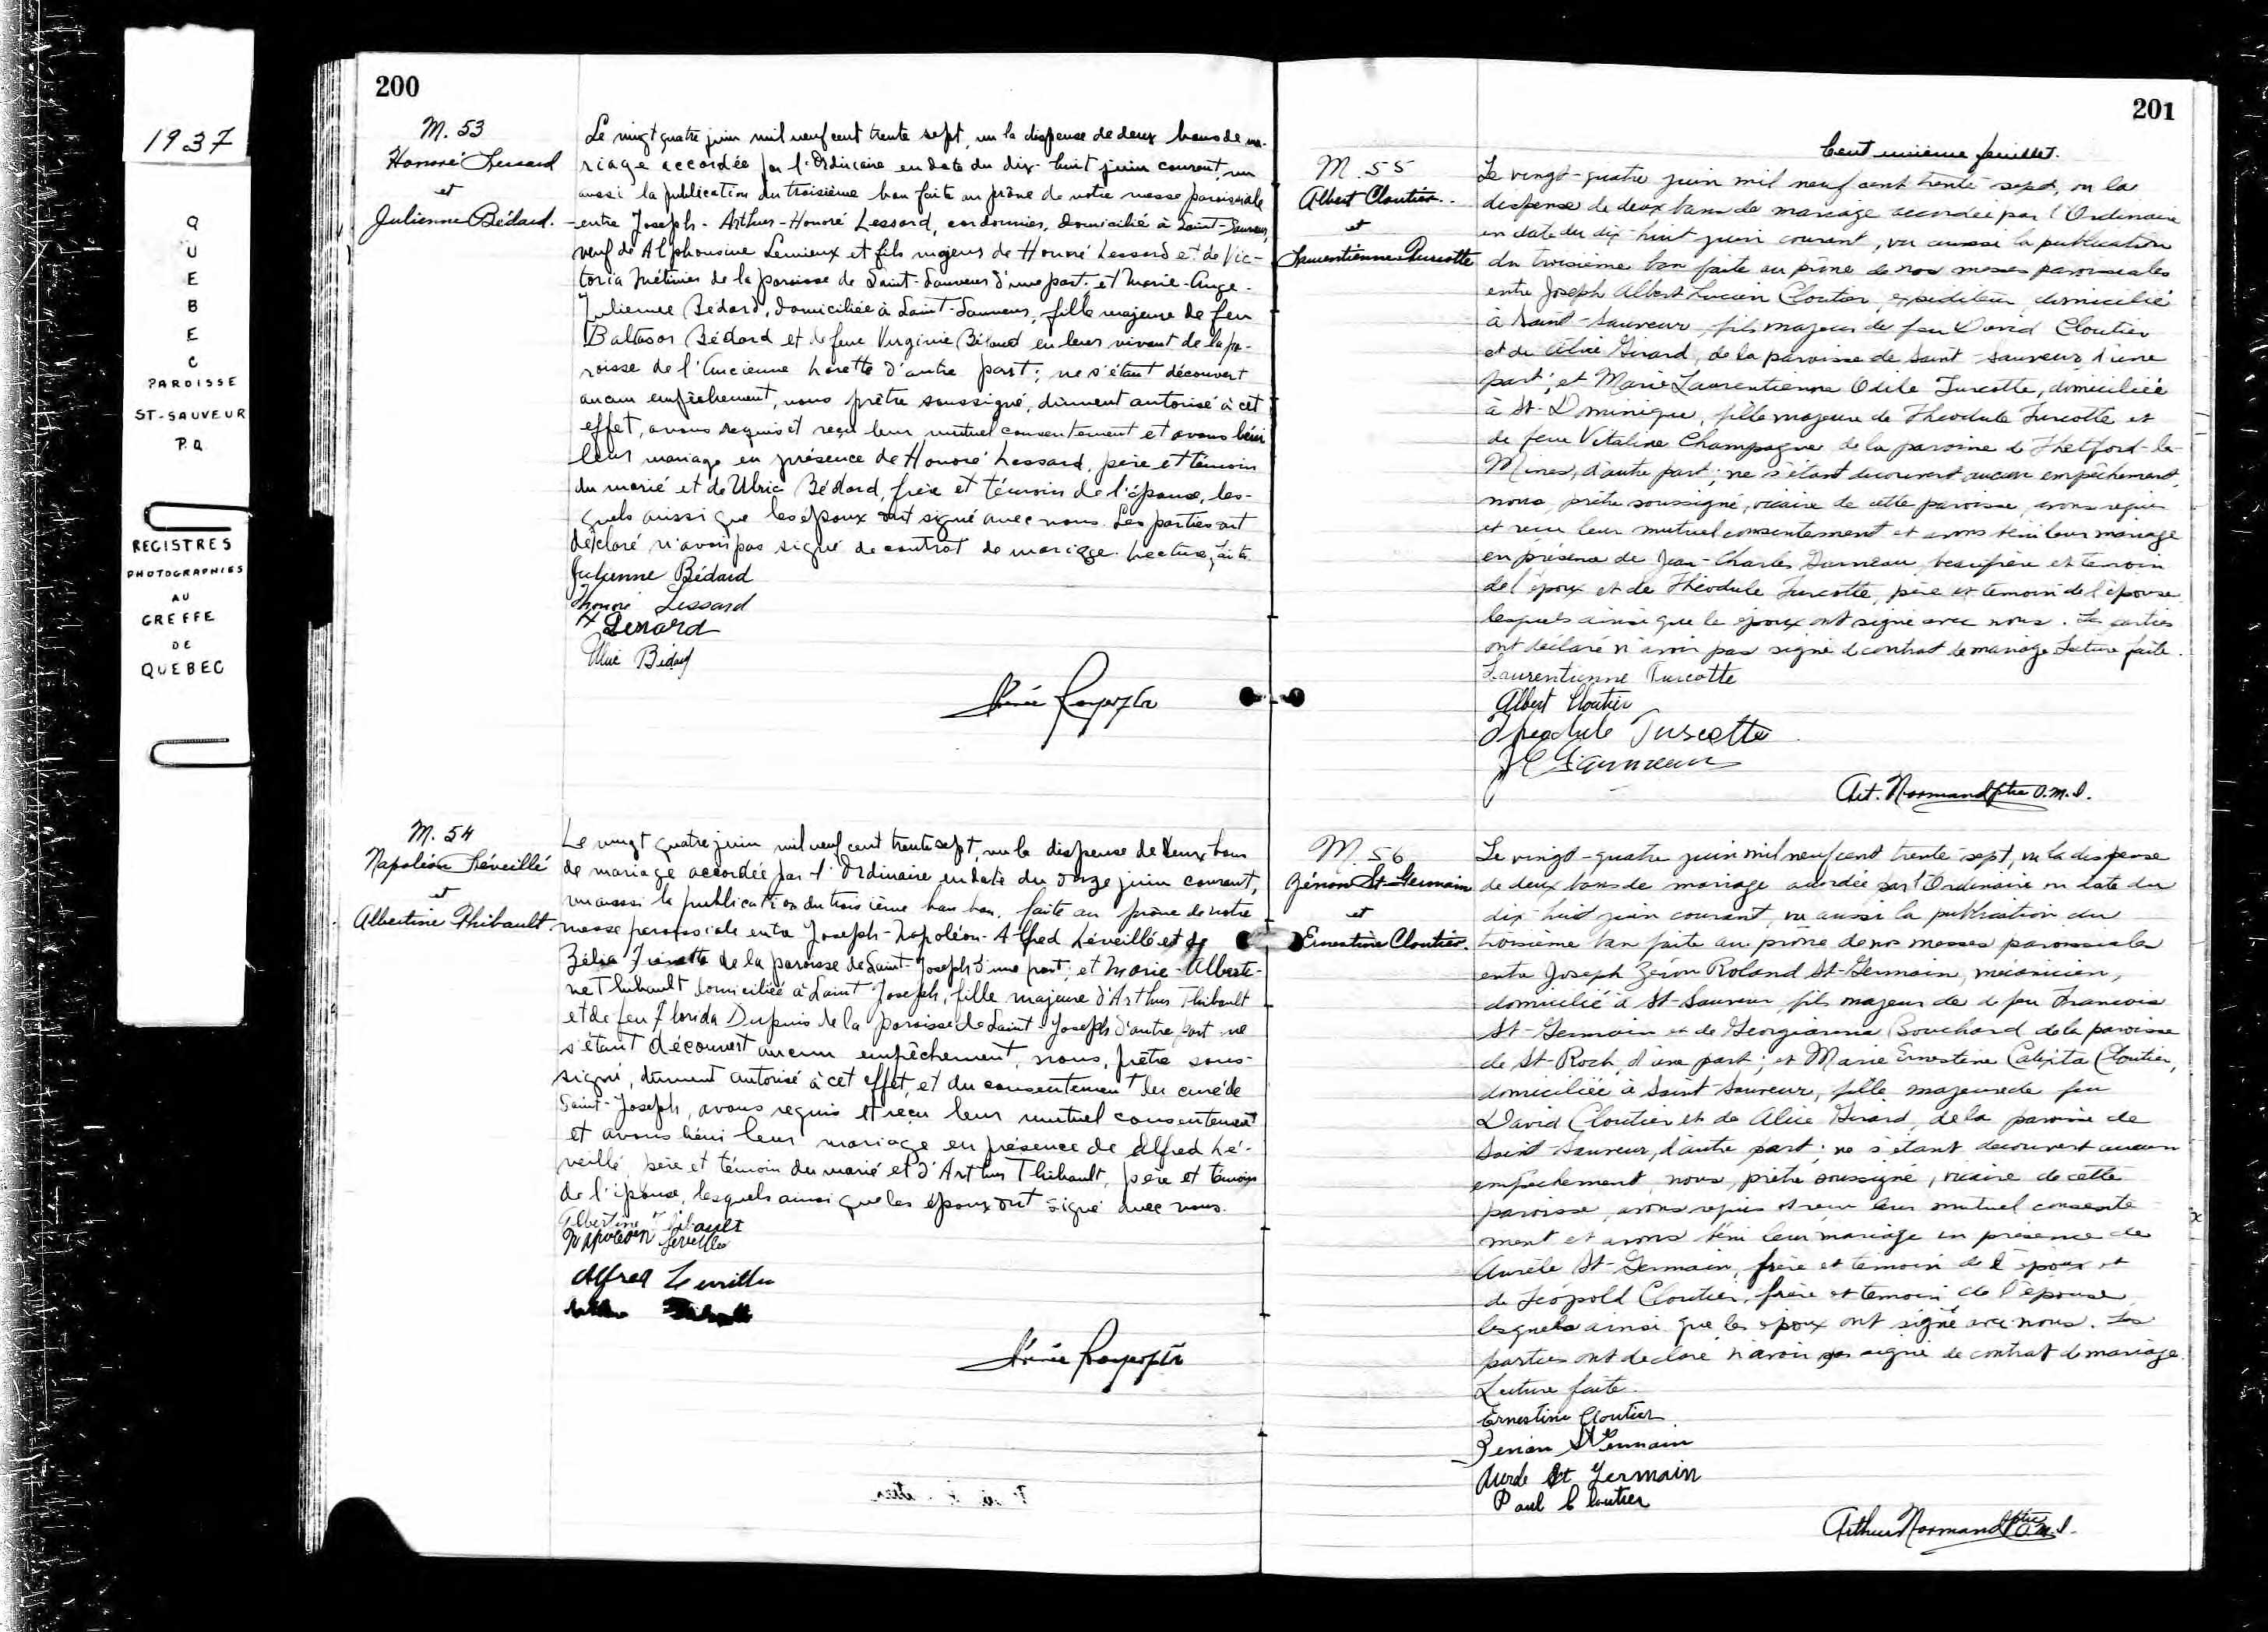 1937
QUEBEC
PAROISSE
ST-SAUVEUR
P.Q
REGISTRES
PHOTOGRAPHIES
AU
GREFFE
DE
QUEBEC
200
M. 53
Honoré Lessard
et
Julienne Bédard.
Le vingt quatre juin mil neuf cent trente sept, vu la dispense de deux bans de ma-
riage accordée par l'Ordinaire en date du dix-huit juin courant, vu
aussi la publication du troisième ban faite au prône de notre messe paroissiale
entre Joseph-Arthur-Honoré Lessard, cordonnier, domicilié à Saint-Sauveur,
veuf de Alphonsine Lemieux et fils majeur de Honoré Lessard et de Vic-
toria Métivier de la paroisse de Saint-Sauveur d'une part; et Marie-Ange-
Julienne Bédard, domiciliée à Saint-Sauveur, fille majeure de feu
Baltasar Bédard et de feue Virginie Bédard en leur vivant de la pa-
roisse de l'Ancienne Lorette d'autre part; ne s'étant découvert
aucun empêchement, nous prêtre soussigné, dûment autorisé à cet
effet, avons requis et reçu leur mutuel consentement et avons béni
leur mariage en présence de Honoré Lessard, père et témoin
du marié et de Ulric Bédard, frère et témoin de l'épouse, les-
quels aussi que les époux ont signé avec nous. Les parties ont
déclaré n'avoir pas signé de contrat de mariage. Lecture faite.
Julienne Bédard
Honoré Lessard
H Lessard
Ulric Bédard
M. 54
Napoléon Léveillé
et
Albertine Thibault
Le vingt quatre juin mil neuf cent trente sept, vu la dispense de deux bans
de mariage accordée par l'Ordinaire en date du onze juin courant,
vu aussi la publication du troisième ban ban, faite au prône de notre
messe paroissiale entre Joseph-Napoléon-Alfred Léveillé et de
Zélia de la paroisse de Saint-Joseph d'une part; et Marie-Alberti-
ne Thibault domiciliée à Saint Joseph, fille majeure d'Arthur Thibault
et de feu Florida Dupuis de la paroisse de Saint-Joseph d'autre part ne
s'étant découvert aucun empêchement, nous, prêtre sous-
signé, dûment autorisé à cet effet, et du consentement du curé de
Saint-Joseph, avons requis et reçu leur mutuel consentement
et avons béni leur mariage en présence de Alfred Lé-
veillé père et témoin du marié et d'Arthur Thibault, père et témoin
de l'épouse, lesquels ainsi que les époux ont signé avec nous.
Albertine Thibault
Napoléon Léveillé
Alfred Leveillee
201
Cent unième feuillet.
M. 55
Albert Cloutier
et
Laurentienne Turcotte
Le vingt-quatre juin mil neuf cent trente sept, vu la
dispense de deux bans de mariage accordée par l'Ordinaire
en date du dix-huit juin courant, vu aussi la publication
du troisième ban faite au prône de nos messes paroissiales
entre Joseph Albert Lucien Cloutier, expéditeur domicilié
à Saint-Sauveur, fils majeur de feu David Cloutier
et de Alice Girard, de la paroisse de Saint-Sauveur d'une
part; et Marie Laurentienne Odile Turcotte, domiciliée
à St-Dominique, fille majeure de Théodule Turcotte et
de feue Vitaline Champagne de la paroisse de Thetford-les-
Mines, d'autre part; ne s'étant découvert aucun empêchement,
nous, prêtre soussigné, vicaire de cette paroisse, avons requis
et reçu leur mutuel consentement et avons béni leur mariage
en présence de Jean-Charles Garneau, beau-frère et témoin
de l'époux et de Théodule Turcotte, père et témoin de l'épouse
lesquels ainsi que les époux ont signé avec nous. Les parties
ont déclaré n'avoir pas signé de contrat de mariage. Lecture faite.
Laurentienne Turcotte
Albert Cloutier
Théodule Turcotte
J C Garneau
Art. Normand ptre O.M.I.
M. 56
Zénon St-Germain
et
Ernestine Cloutier.
Le vingt-quatre juin mil neuf cent trente sept, vu la dispense
de deux bans de mariage accordée par l'Ordinaire en date du
dix-huit juin courant, vu aussi la publication du
troisième ban faite au prône de nos messes paroissiales
entre Joseph Zénon Roland St-Germain, mécanicien,
domicilié à St-Sauveur, fils majeur de de feu Francois
St-Germain et de Georgianna Bouchard de la paroisse
de St-Roch, d'une part; et Marie Ernestine Calixta Cloutier,
domiciliée à Saint-Sauveur, fille majeure de feu
David Cloutier et de Alice Girard, de la paroisse de
Saint-Sauveur, d'autre part; ne s'étant découvert aucun
empêchement, nous, prêtre soussigné, vicaire de cette
paroisse, avons requis et reçu leur mutuel consente
ment et avons béni leur mariage en présence de
Aurèle St-Germain, frère et témoin de l'époux et
de Léopold Cloutier, frère et témoin de l'épouse,
lesquels ainsi que les époux ont signé avec nous. Les
parties ont déclaré n'avoir pas signé de contrat de mariage.
Lecture faite.
Ernestine Cloutier
Zenon St Germain
Aurele St Germain
Paul E Cloutier
Arthur Normand ptre O.M.I.